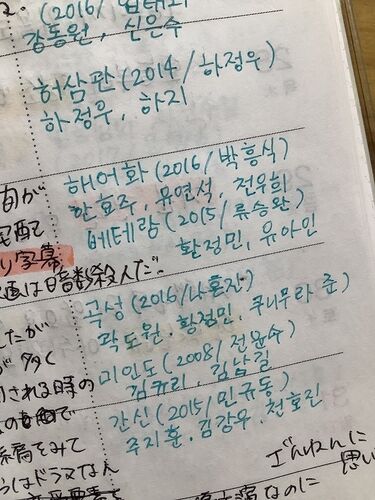 (2016/엄태화)
강동원, 신은수
허삼관(2014/하정우)
하정우, 하지
해어화(2016/박흥식)
한효주, 유연석, 전우희
베테랑(2015/류승완)
황정민, 유아인
곡성(2016/나홍진)
곽도원, 황정민, 쿠니무라 준
미인도(2008/전윤수)
김규리, 김남길
간신(2015/민규동)
주지훈, 김강우, 천호진
旬が
宅配
り字幕
週は暗数殺人だ。
したが
が多く
される時の
で
みて
らはドラマなん
ざんねんに
思い
なのに